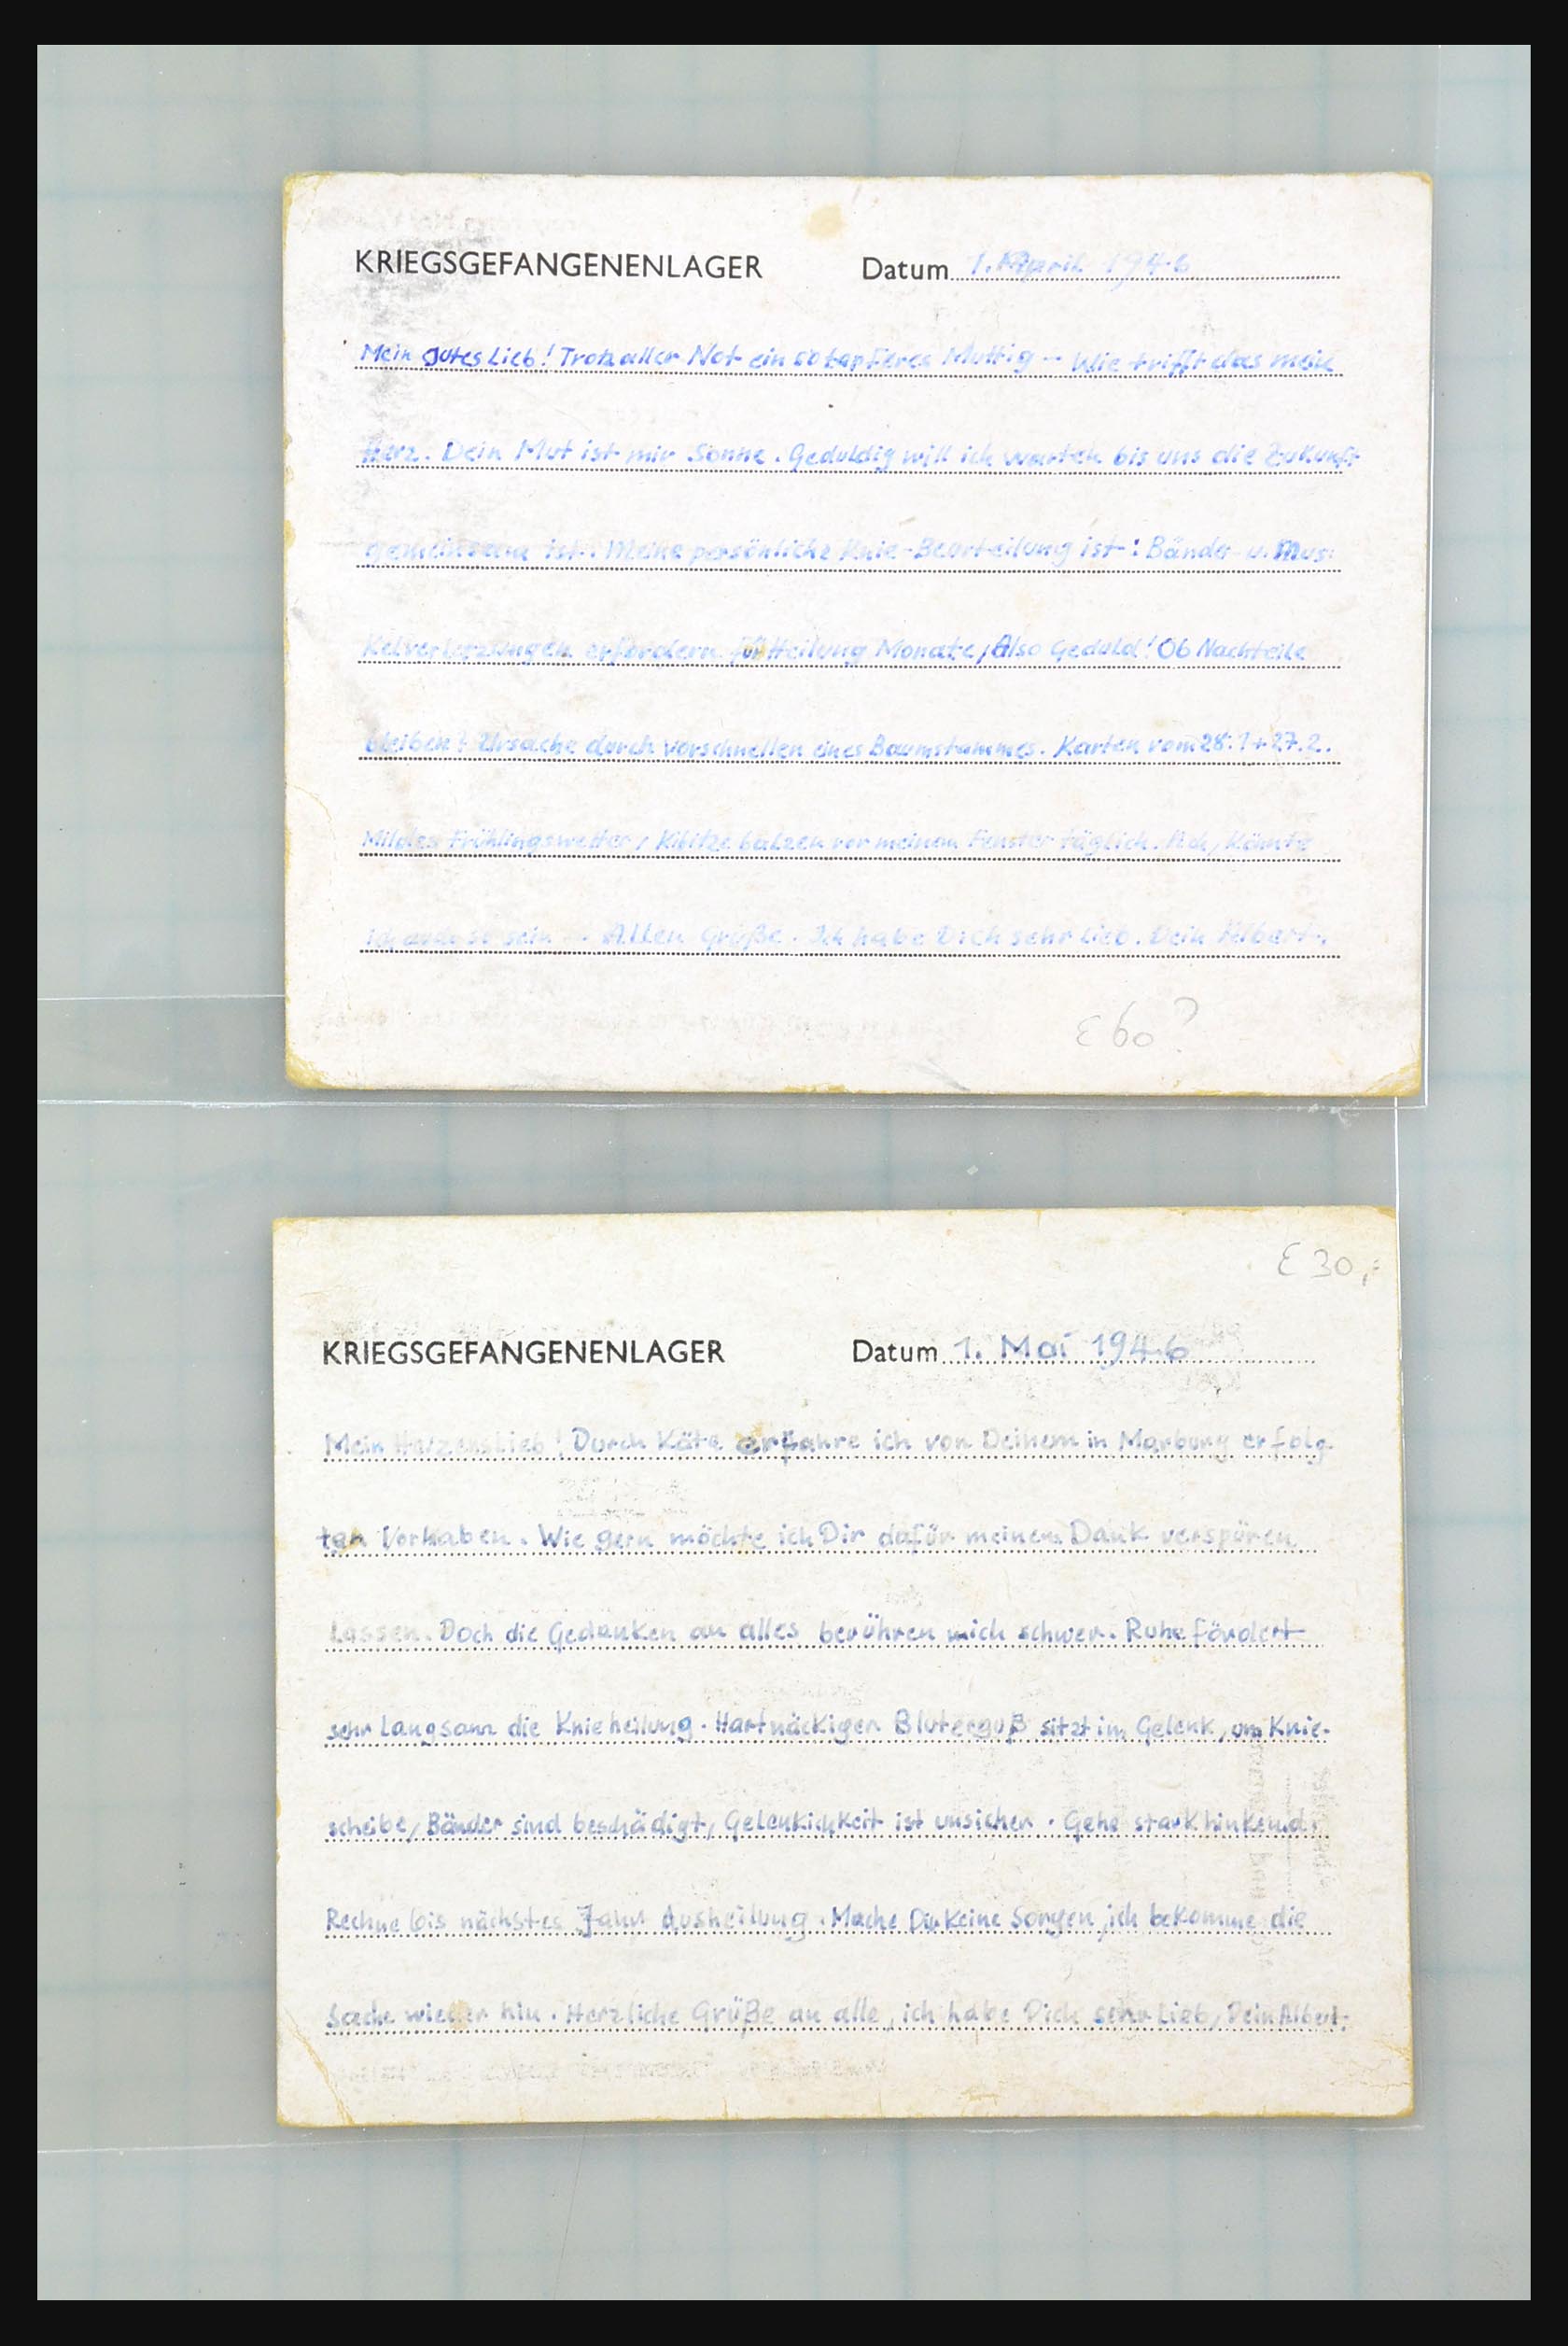 KRIEGSGEFANGENENLAGER Datum 1. April 1946
Mein gutes Lieb! Trotz aller Not ein so tapferes Muttig -- Wie trifft das mein
Herz. Dein Mut ist mir Sonne. Geduldig will ich warten bis uns die Zukunft
gemeinsam ist. Meine persönliche Knie-Beurteilung ist: Bänder- u. Mus-
kelverletzungen erfordern für Heilung Monate, Also Geduld! Ob Nachteile
bleiben? Ursache durch Vorschnellen eines Baumstammes. Karten vom 28.1+27.2.
Mildes Frühlingswetter, Kibitze balzen vor meinem Fenster täglich. Ach, könnte
ich auch so sein -- Allen Grüße. Ich habe Dich sehr lieb. Dein Albert.
€ 60?
€ 30,-
KRIEGSGEFANGENENLAGER Datum 1. Mai 1946
Mein Herzenslieb! Durch Käte erfahre ich von Deinem in Marburg erfolg-
ten Vorhaben. Wie gern möchte ich Dir dafür meinen Dank verspüren
lassen. Doch die Gedanken an alles berühren mich schwer. Ruhe fördert
sehr langsam die Knieheilung. Hartnäckiger Bluterguß sitzt im Gelenk, um Knie-
scheibe, Bänder sind beschädigt, Gelenkichkeit ist unsicher. Gehe stark hinkend.
Rechne bis nächstes Jahr Ausheilung. Mache Dir keine Sorgen, ich bekomme die
Sache wieder hin. Herzliche Grüße an alle, ich habe Dich sehr lieb, Dein Albert.